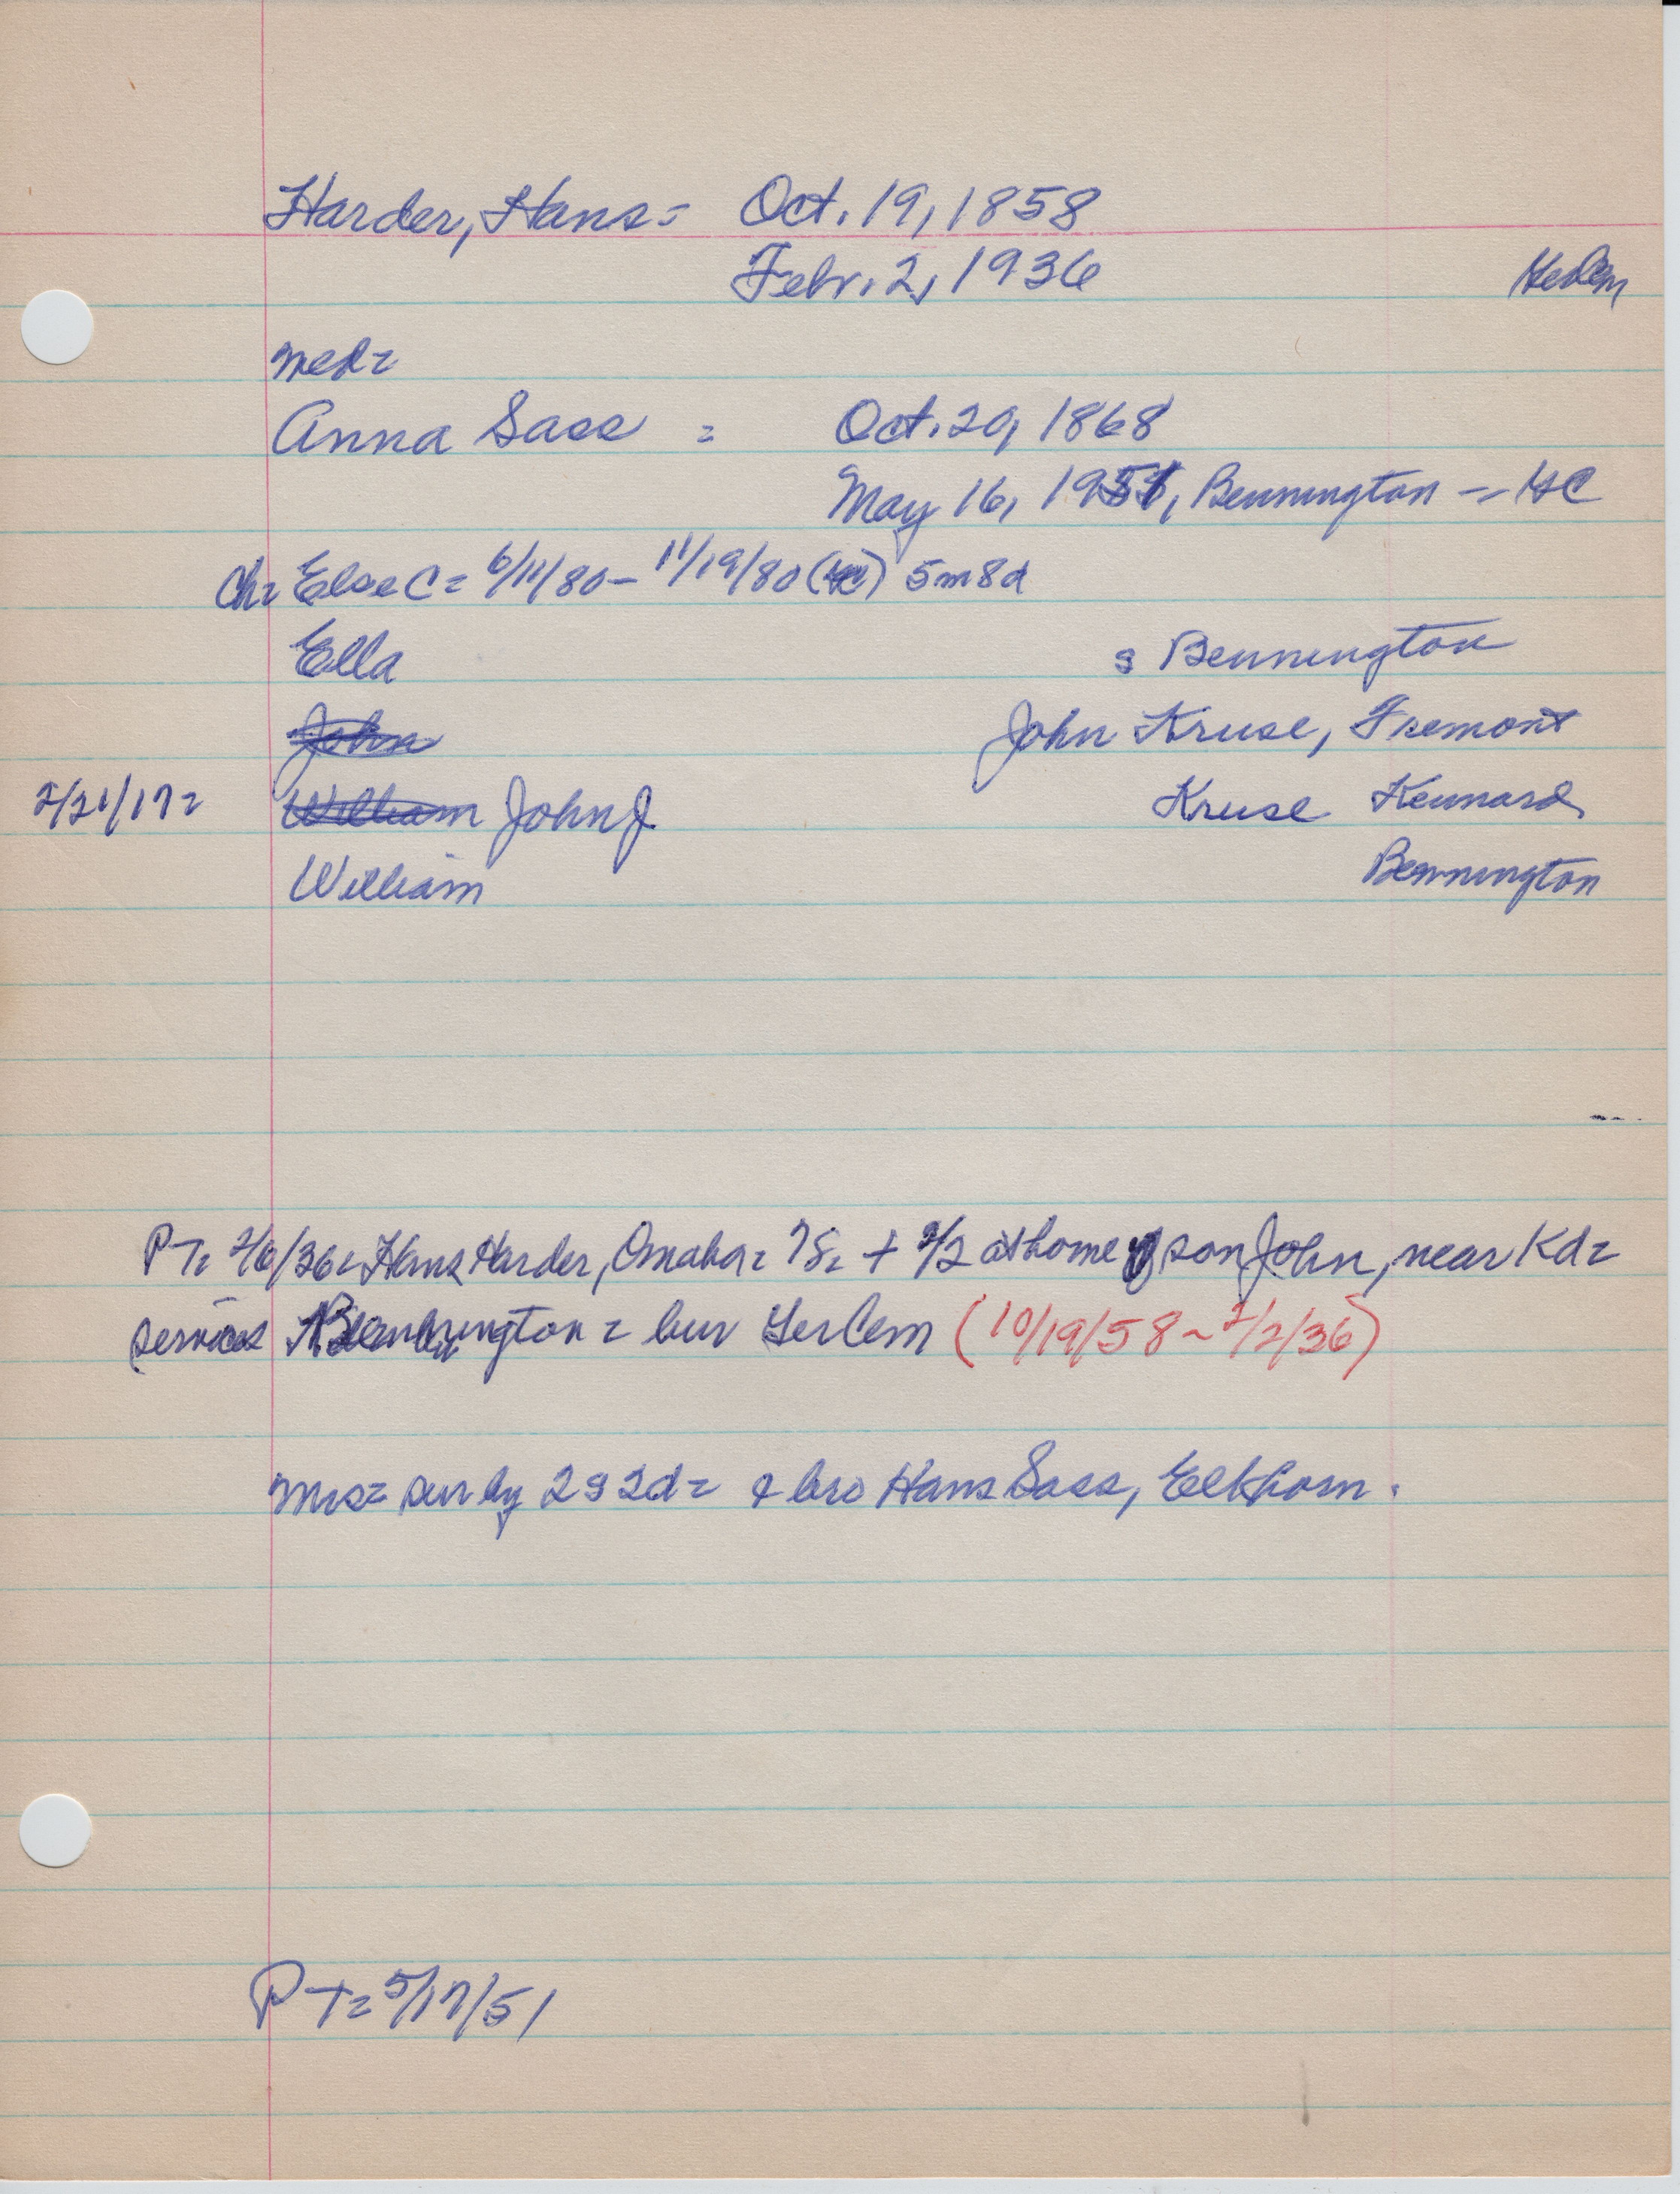 Harder, Hans = Oct. 19, 1858
Febr. 2, 1936
med =
Anna Sass = Oct. 20, 1868
May 16, 1951, Bennington -- HC
Ch = Else C = 6/11/80 - 11/19/80 5m8d
Ella s Bennington
John John Kruse, Fremont
2/21/17 = William John J Kruse Kennard
William Bennington
PT = 2/6/36 = Hans Harder, Omaha = 78 = + 2/2 at home of son John, near Kd =
services Bennington = bur GerCem (10/19/58 ~ 2/2/36)
Mrs = sur by 2s 2d = & bro Hans Sass, Elkhorn.
PT = 5/17/51